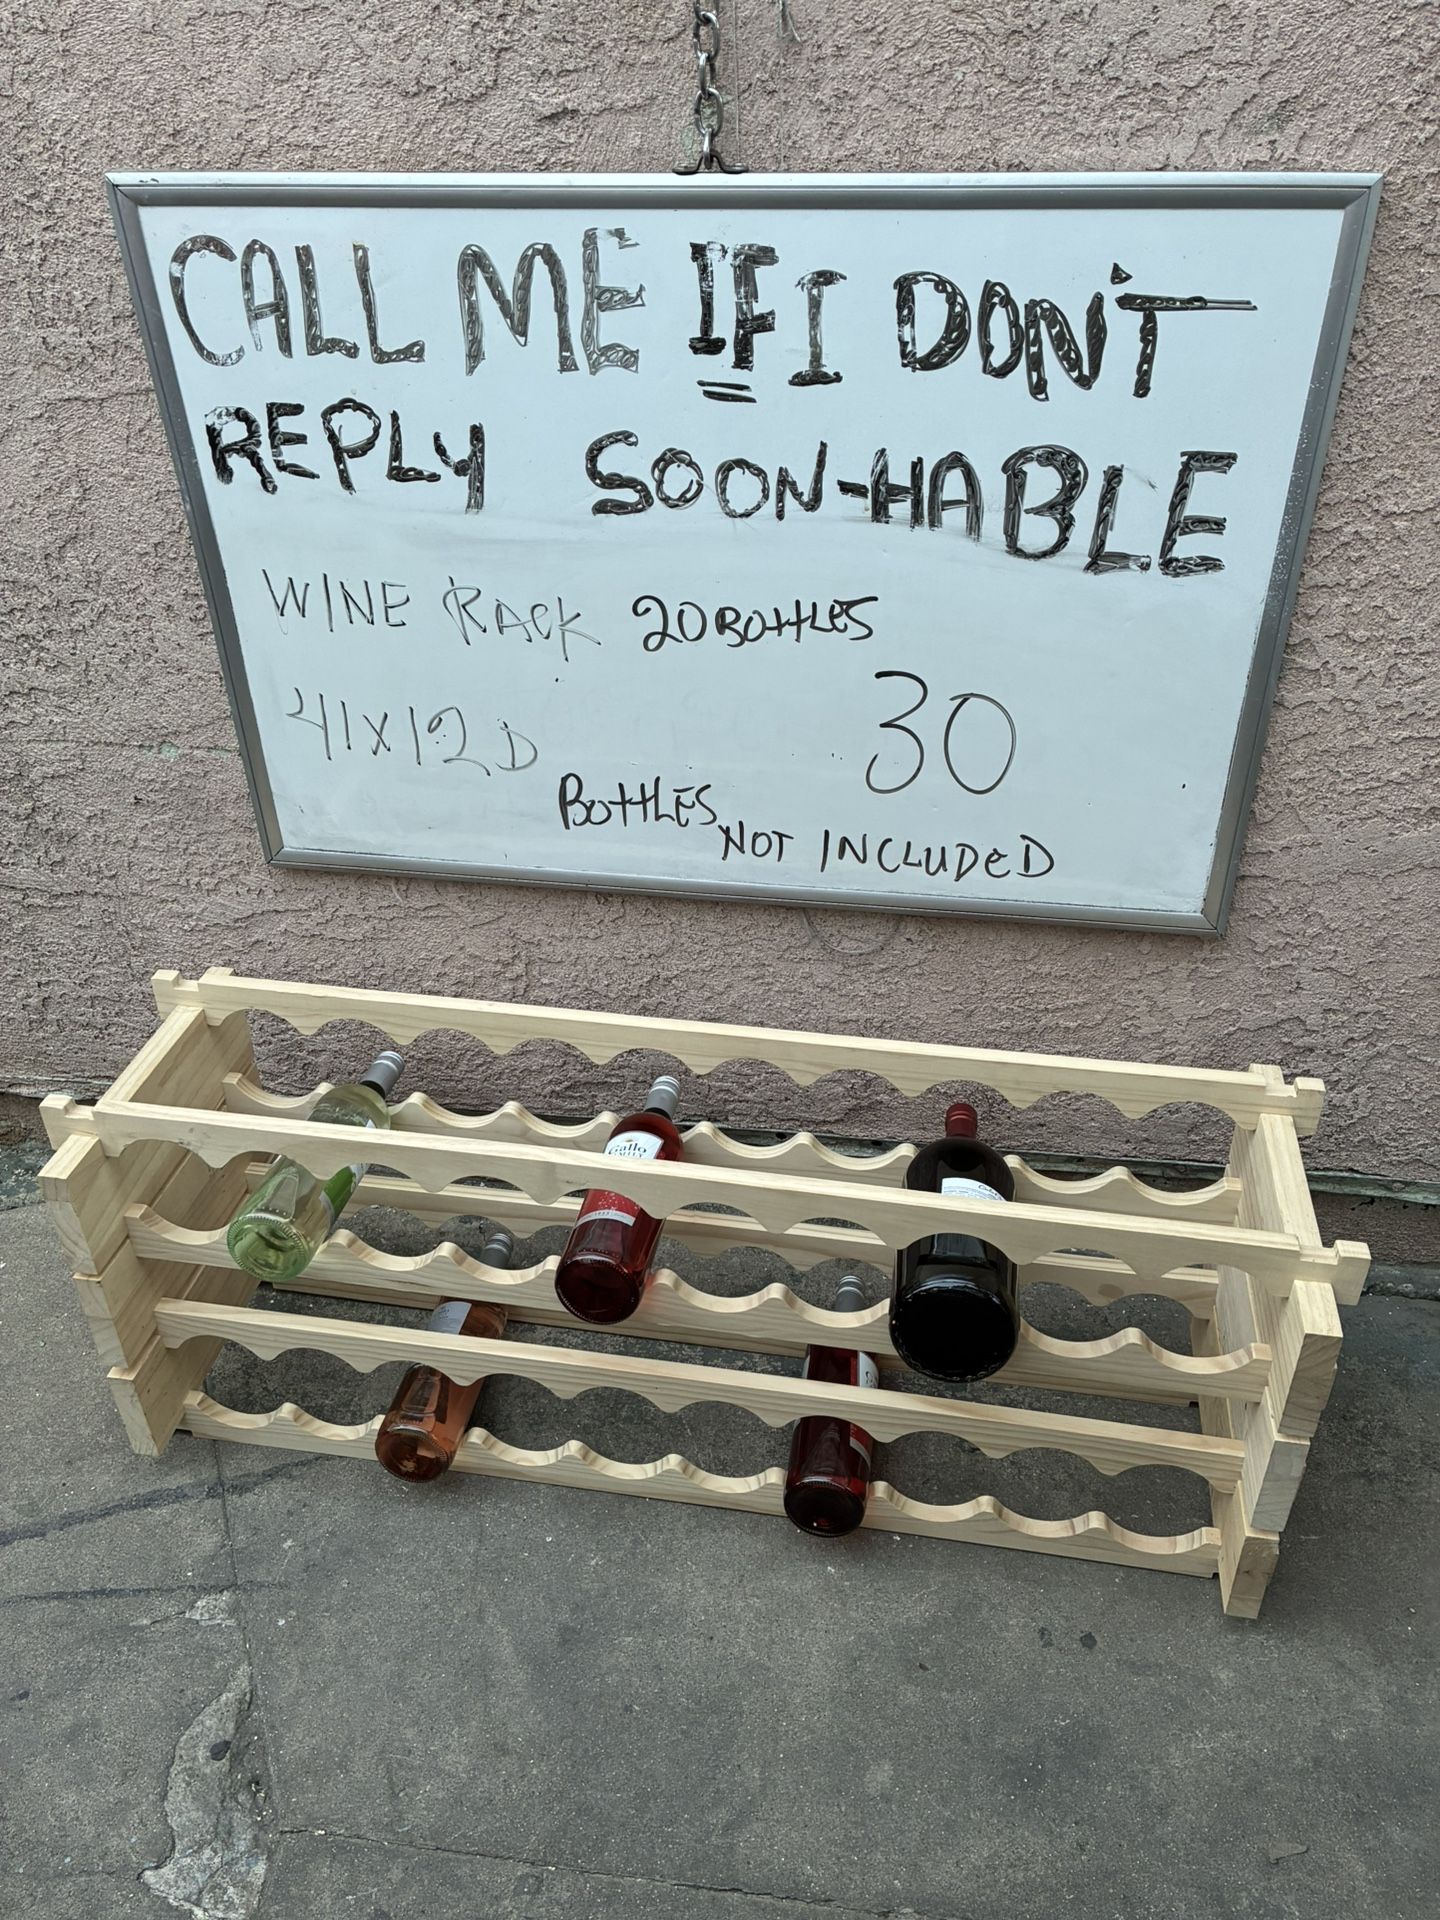 CALL ME IF I DON'T
REPLY SOON-HABLE
WINE RACK 20 BOTTLES
41X12D
30
BOTTLES
NOT INCLUDED
Gallo
FAMILY